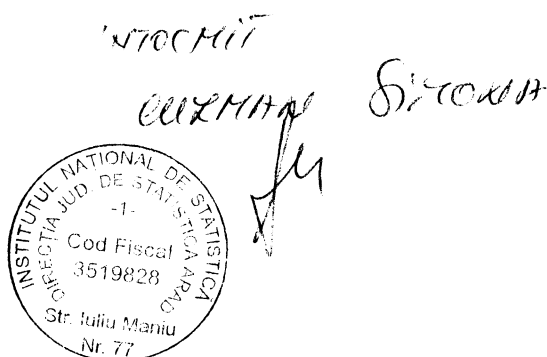 INTOCMIT
GUZMAN SIMONA
INSTITUTUL NATIONAL DE STATISTICĂ
DIRECŢIA JUD. DE STATISTICA ARAD
-1-
Cod Fiscal
3519828
Str. Iuliu Maniu
Nr. 77